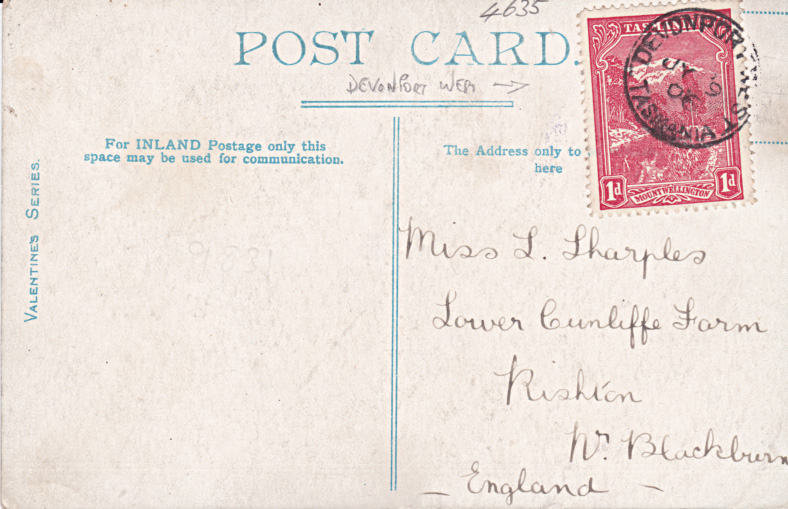 4635
POST CARD.
DEVONPORT WEST →
For INLAND Postage only this
space may be used for communication.
The Address only to
here
VALENTINE'S SERIES.
TASMANIA
DEVONPORT WEST
TASMANIA
1d
MOUNT WELLINGTON
1d
Miss L. Sharples
Lower Cunliffe Farm
Rishton
Nr. Blackburn
– England –